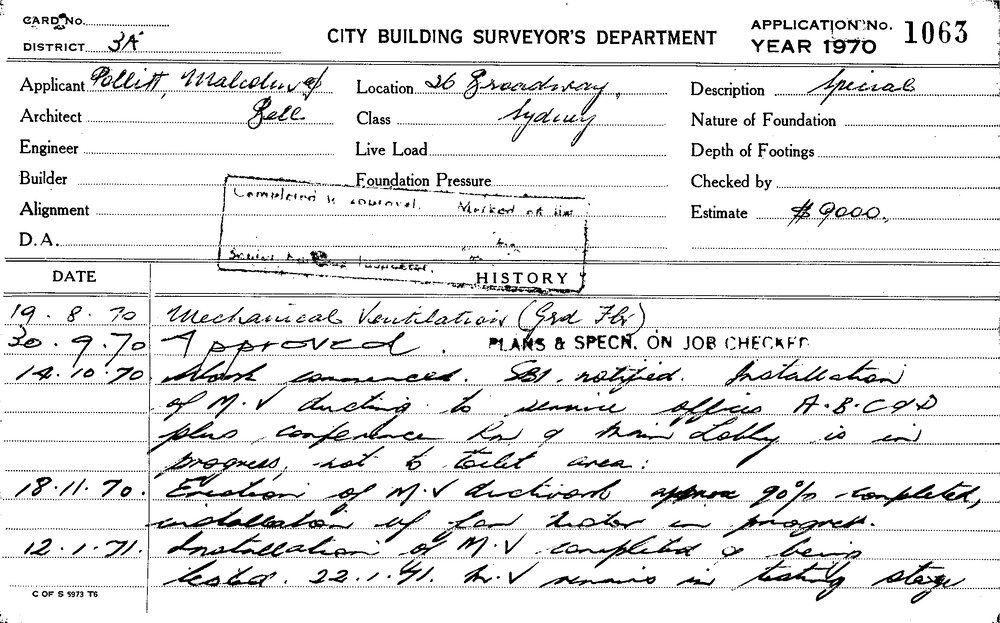 CARD No.
DISTRICT 3A
CITY BUILDING SURVEYOR'S DEPARTMENT
APPLICATION No. 1063
YEAR 1970
Applicant Pollitt, Malcolm &
Architect Bell
Engineer
Builder
Alignment
D.A.
Location 26 Broadway,
Class Sydney
Live Load
Foundation Pressure
Description Special
Nature of Foundation
Depth of Footings
Checked by
Estimate $9000.
Completed is approval. Marked off
DATE
HISTORY
19.8.70 Mechanical Ventilation (Grd Flr)
30.9.70 Approved. PLANS & SPECN. ON JOB CHECKED
14.10.70 Work commenced. SBI notified. Installation
of M.V ducting to service offices A.B.C & D
plus conference Rm & Main Lobby is in
progress, not to toilet area:
18.11.70. Erection of M.V ductwork approx 90% completed,
installation of fan motor in progress.
12.1.71. Installation of M.V completed & being
tested. 22.1.71. M.V remains in testing stage
C OF S 5973 T6